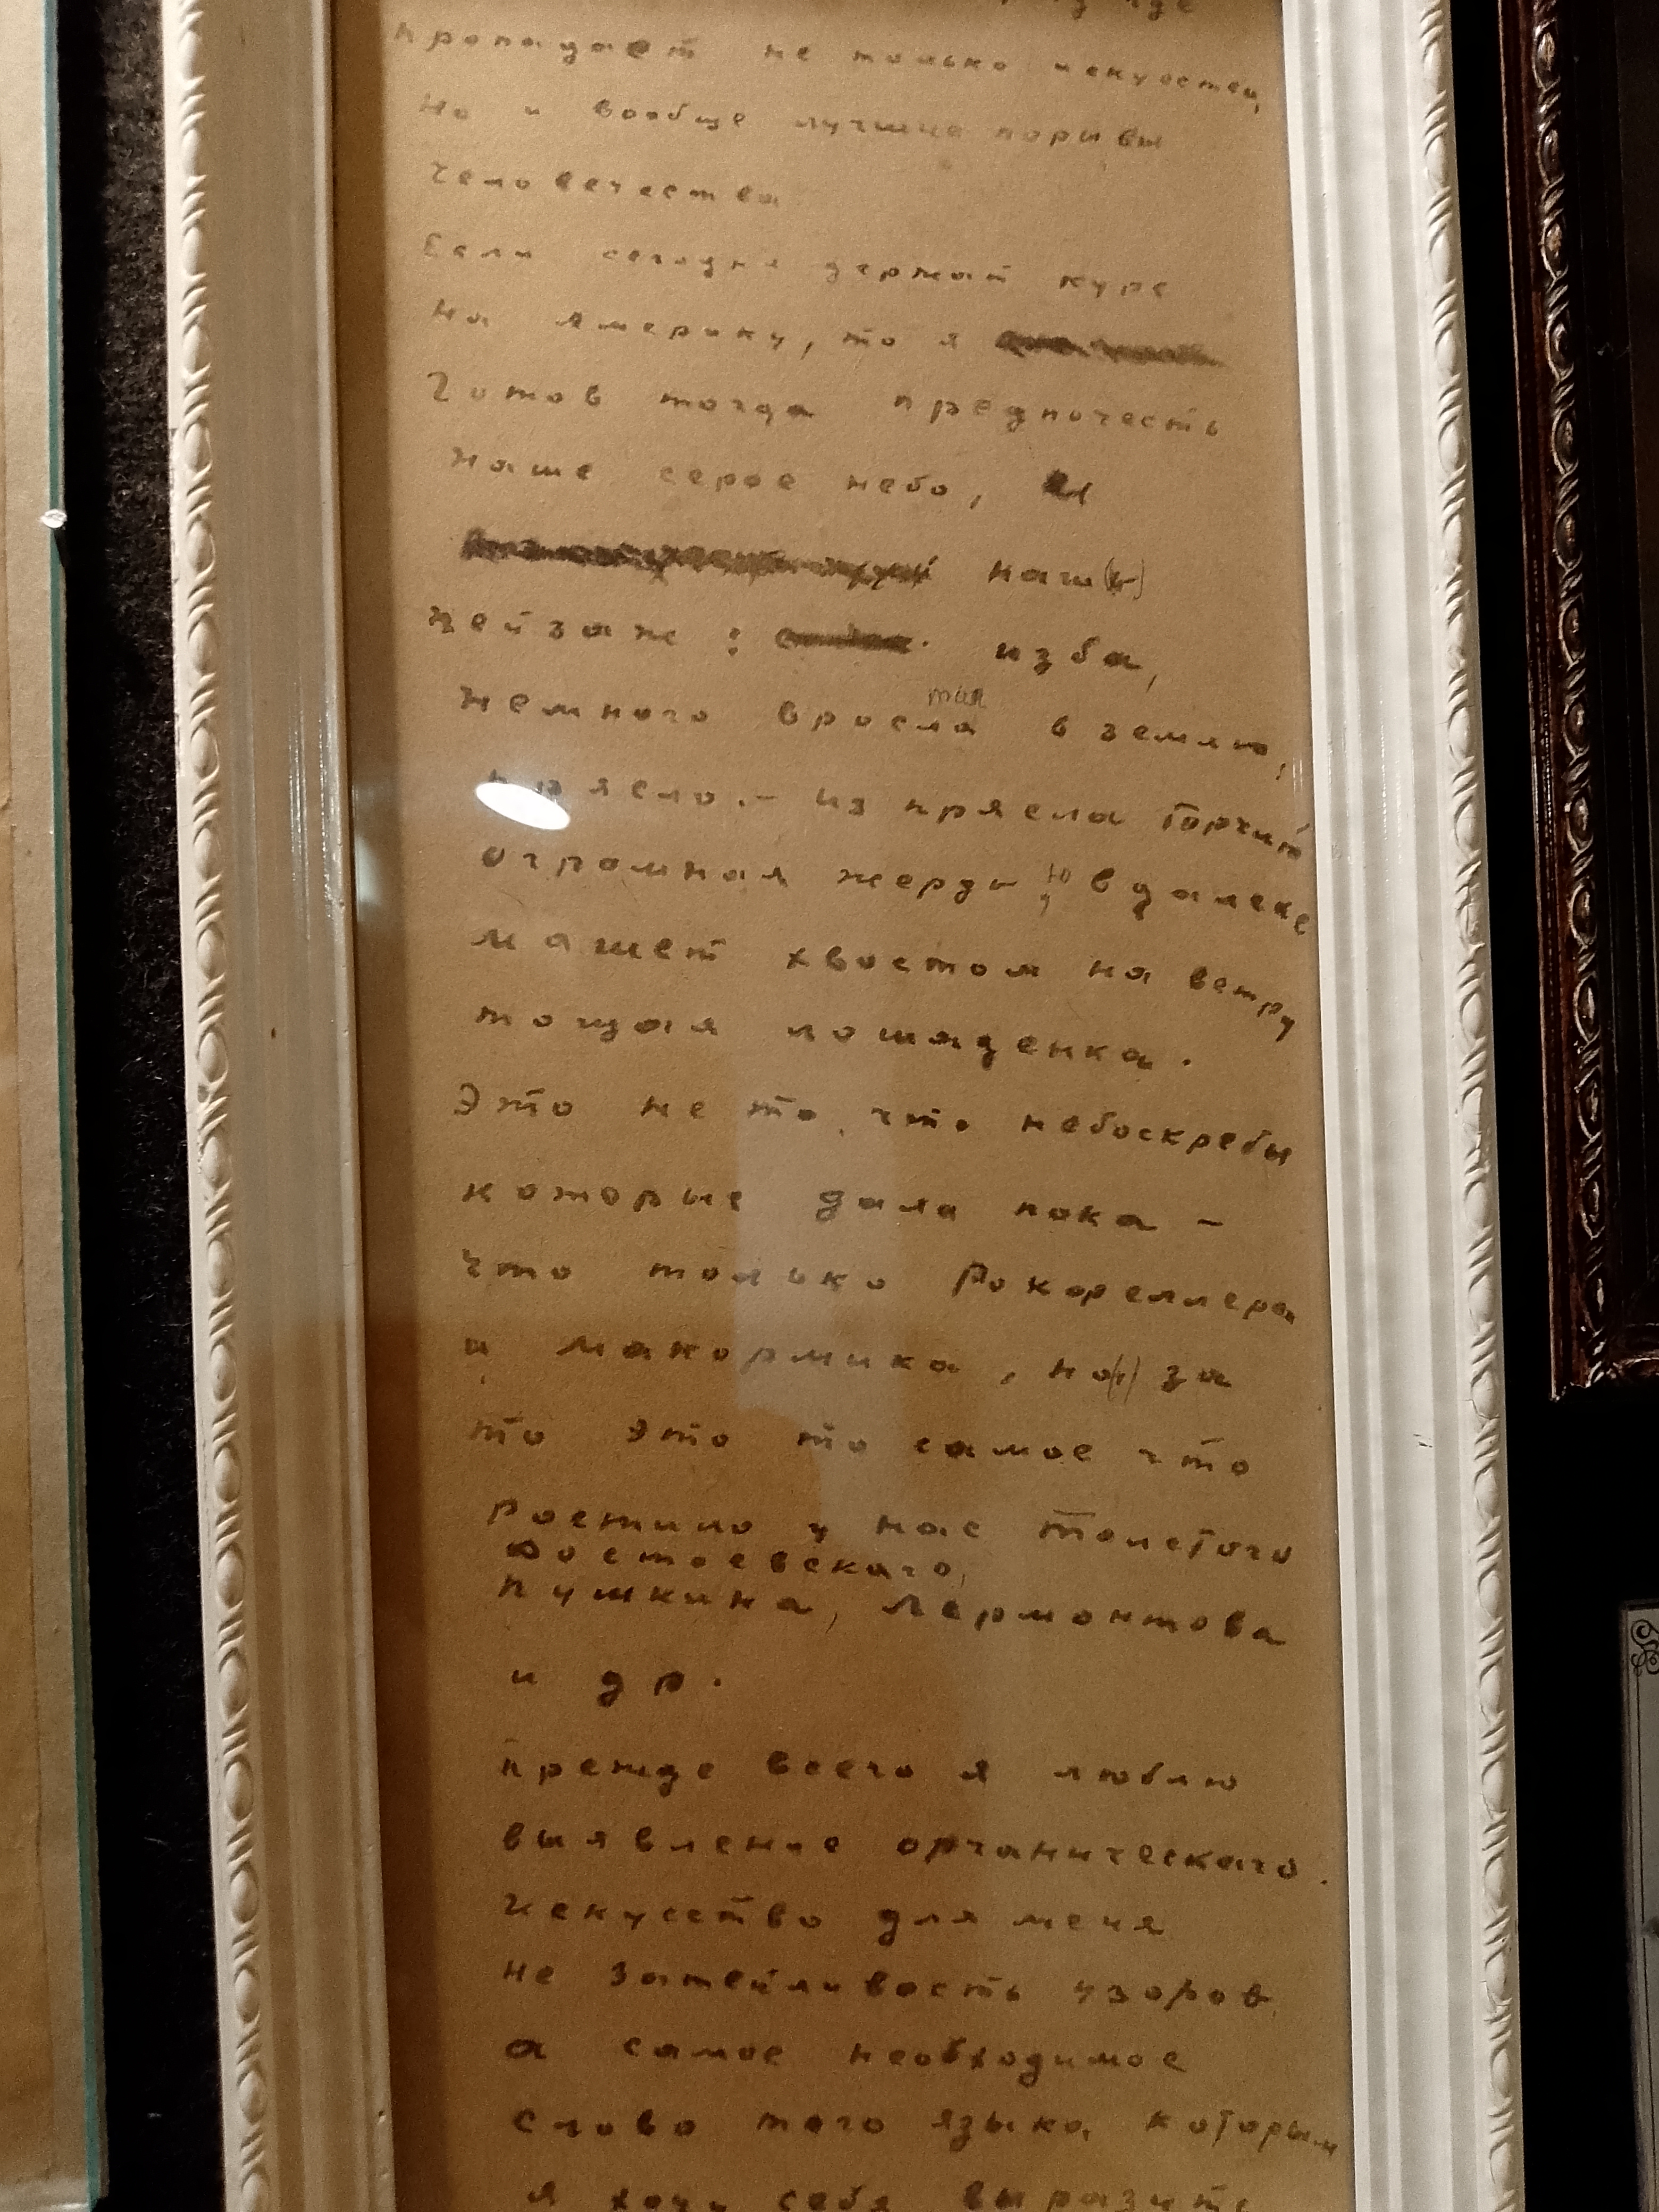 пропадает не только искусство,
Но и вообще лучшие порывы
Человечества
Если сегодня держат курс
На Америку, то я
Готов тогда предпочесть
Наше серое небо, и
наш(ъ)
Пейзаж: изба,
Немного вросла в землю,
тая
прясло. – из прясла торчит
огромная жердь, вдалеке
машет хвостом на ветру
тощая лошаденка.
Это не то, что небоскребы
которые дала пока –
Что только Рокфеллера
и Макормика, но за
то это то самое что
Ростило у нас Толстого
Достоевского,
Пушкина, Лермонтова
и др.
прежде всего я люблю
выявление органического.
Искусство для меня
не затейливость узоров
а самое необходимое
слово того языка, которым
я хочу себя выразить